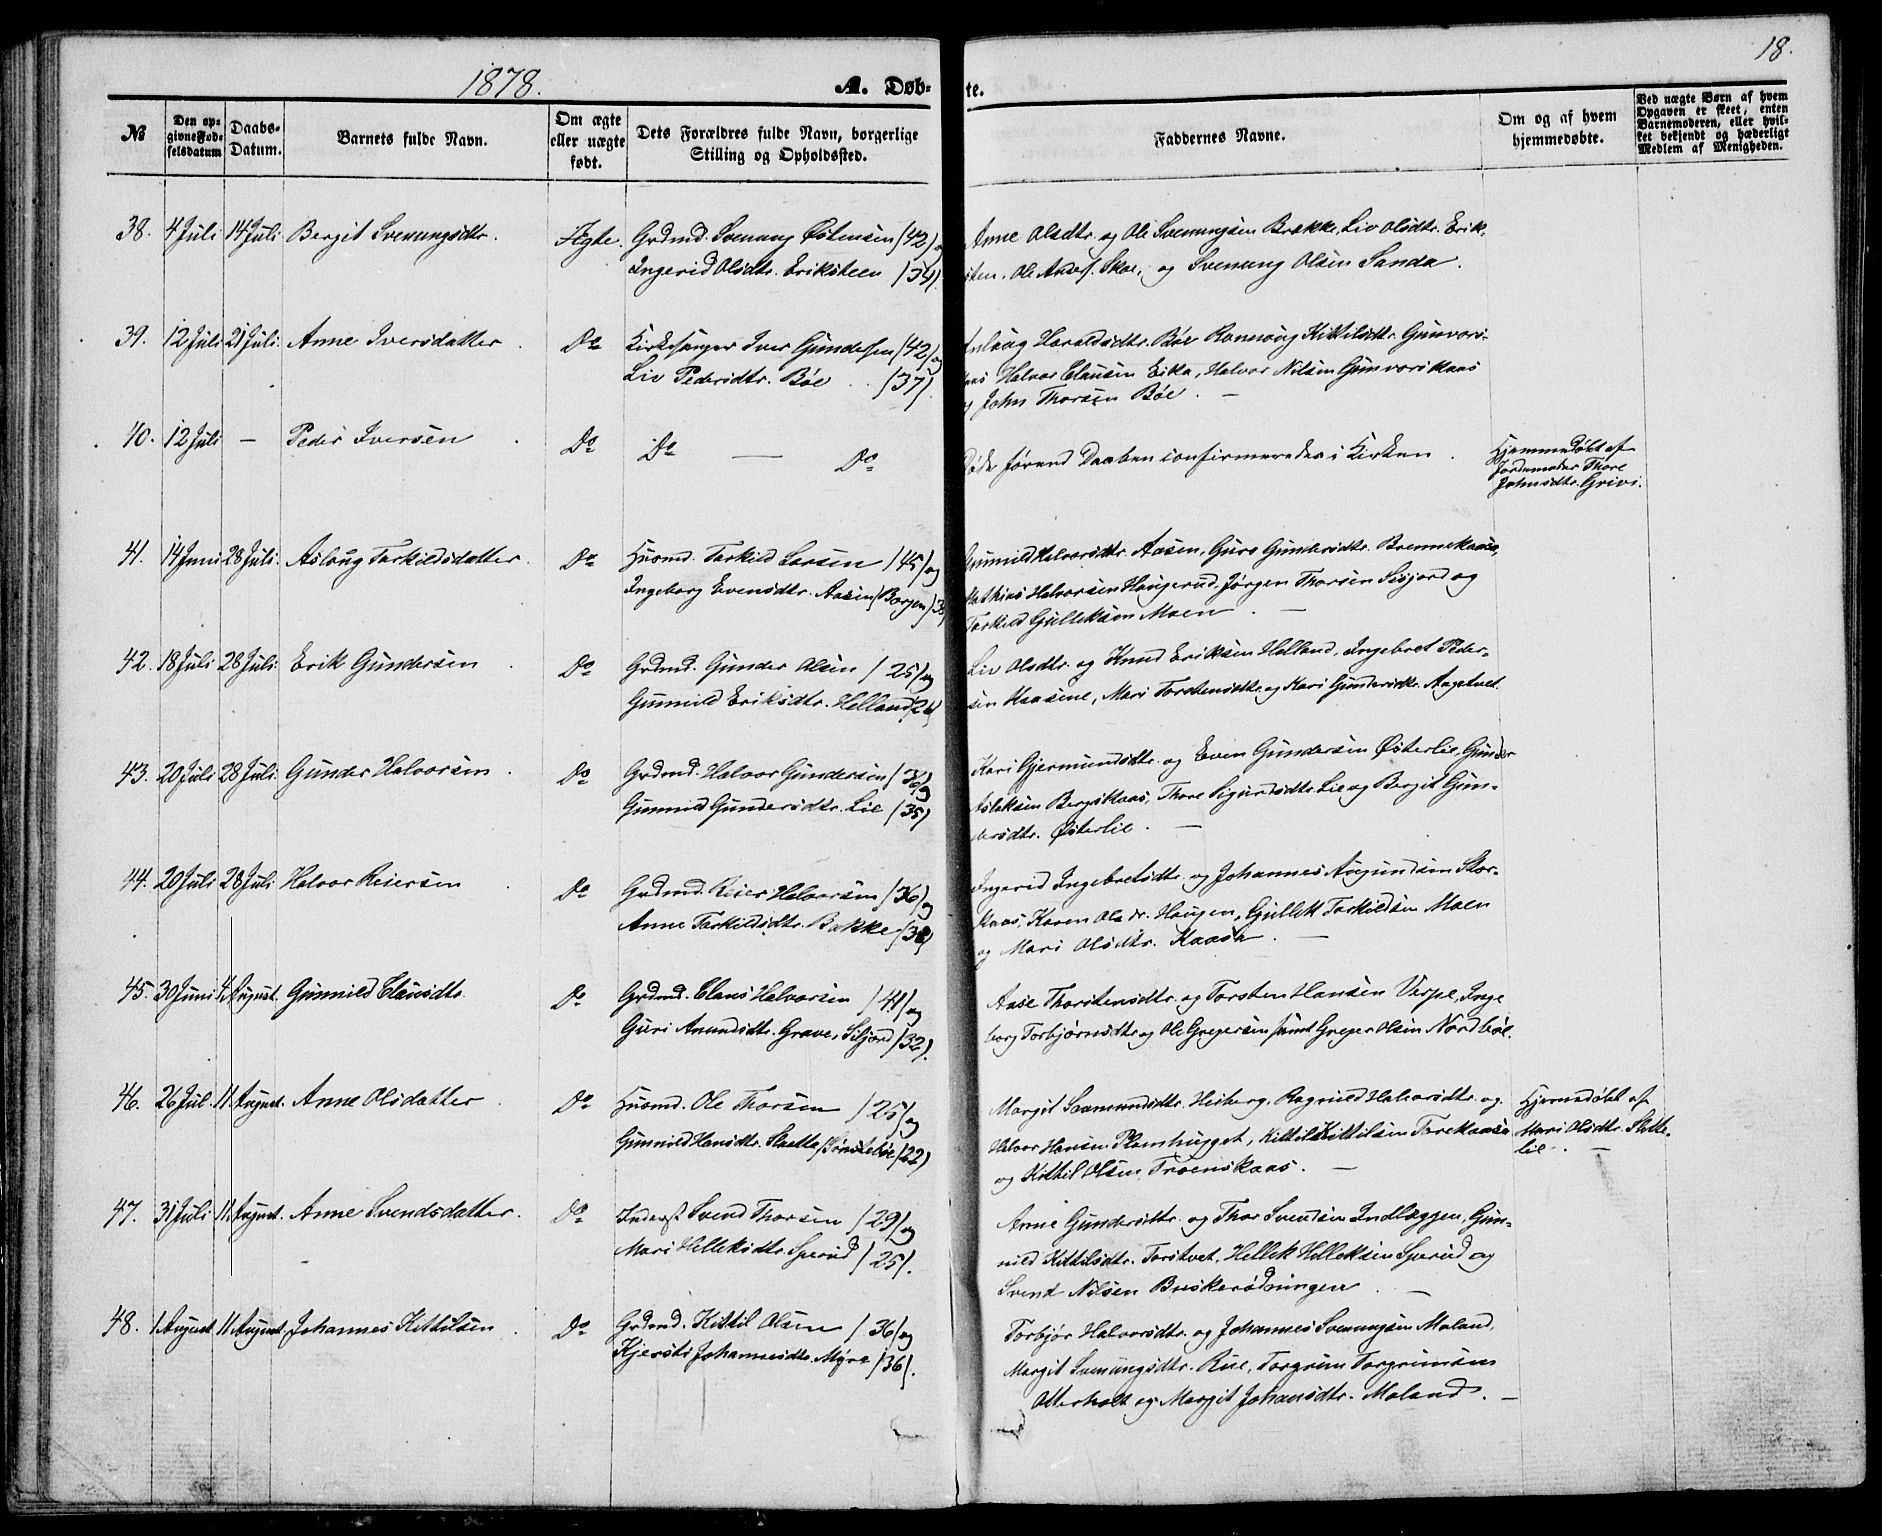 18.
1878.
A. Døb-
te.
No
Den op-
givne Fød-
selsdatum
Daabs-
Datum.
Barnets fulde Navn.
Om ægte
eller uægte
født.
Dets Forældres fulde Navn, borgerlige
Stilling og Opholdssted.
Faddernes Navne.
Om og af hvem
hjemmedøbte.
Ved uægte Børn af hvem
Opgaven er skeet, enten
Barnemoderen, eller hvil-
ket bekjendt og hæderligt
Medlem af Menigheden.
38. 4 Juli 14 Juli Bergit Svenungsdtr. Ægte. Grdmd. Svenung Østensen /42/ og
Ingerid Olsdtr. Eriksteen /34/.
Anne Olsdtr. og Ole Svenungsen Brække, Liv Olsdtr. Erik-
sten. Ole Skoe, og Svenung Olsen Sanda.
39. 12 Juli 21 Juli. Anne Iversdatter Do Kirkesanger Iver Gundersen /42/ og
Liv Pedersdtr. Bøe . . /37/.
Aslaug Haraldsdtr. Bøe Rannoug Kittilsdtr. Gunvors-
kaas Halvor Clausen Eika, Halvor Nilsen Gunvorskaas
og John Thorsen Bøe. —
40. 12 Juli — Peder Iversen Do Do — Do
Døde førend Daaben confirmeredes i Kirken.
Hjemmedøbt af
Jordemoder Thore
Johnsdtr. Grivi.
41. 14 Juni 28 Juli. Aslaug Tarkildsdatter. Do Husmd. Tarkild Larsen /45/ og
Ingeborg Evensdtr. Aasen/Borgen
Gunnild Halvorsdtr. Aasen, Guro Gundersdtr. Brennekaasa,
Mathias Halvorsen Haugerud, Jørgen Thorsen Sisjord og
Tarkild Gulleksen Moen. —
42. 18 Juli 28 Juli. Erik Gundersen Do Grdmd. Gunder Olsen /25/ og
Gunnild Eriksdtr. Helland
Liv Olsdtr. og Knud Eriksen Helland, Ingebret Peder-
sen Kaasene, Mari Torstensdtr. og Kari Gundersdtr. Aagetvet.
43. 20 Juli 28 Juli. Gunder Halvorsen Do Grdmd. Halvor Gundersen /36/ og
Gunnild Gundersdtr. Lie /35/
Kari Gjermundsdtr. og Even Gundersen Østerlie, Gunder
Aslaksen Bergskaas, Thore Sigurdsdtr. Lie og Bergit Gun-
dersdtr. Østerlie. —
44. 20 Juli 28 Juli Halvor Reiersen Do Grdmd. Reier Halvorsen /36/ og
Anne Tarkildsdtr. Bakke
Ingerid Ingebretsdtr. og Johannes Augundsen Stor-
kaas, Karen Olsdr. Haugen, Gullik Tarkildsen Moen
og Mari Olsdtr. Kaasa. —
45. 30 Juni 4 August. Gunnild Clausdtr. Do Grdmd. Claus Halvorsen /41/ og
Guri Amundsdtr. Grave, Siljord /32/.
Aase Thorstensdtr. og Torsten Hansen Verpe, Inge
borg Torbjørnsdtr. og Ole Gregersen samt Greger Olsen Nordbøe.
46. 26 Jul. 11 August. Anne Olsdatter Do Husmd. Ole Thorsen /25/ og
Gunnild Hansdtr. /22/
Margit Saamundsdtr. Heiberg, Ragnild Halvorsdtr. og
Halvor Hansen Plomhugget, Kittil Kittilsen Torekaasa
og Kittil Olsen Troenskaas. —
Hjemmedøbt af
Mari Olsdtr. Slette-
lie. —
47. 31 Juli 11 August. Anne Svendsdatter. Do Inderst Svend Thorsen /29/ og
Mari Helleksdtr. Sperud /25/.
Anne Gundersdtr. og Thor Svendsen Indlæggen, Gun-
nild Kittilsdtr. Torstvet, Hellek Helleksen Sperud og
Svend Nilsen Buskerødningen. —
48. 1 August 11 August. Johannes Kittilsen Do Grdmd. Kittil Olsen /36/ og
Kjersti Johannesdtr. Myra /36/.
Torbjør Halvorsdtr. og Johannes Svenungsen Moland,
Margit Svenungsdtr. Rue, Torgrim Torgrimsen
Otterholt og Margit Johansdtr. Moland. —